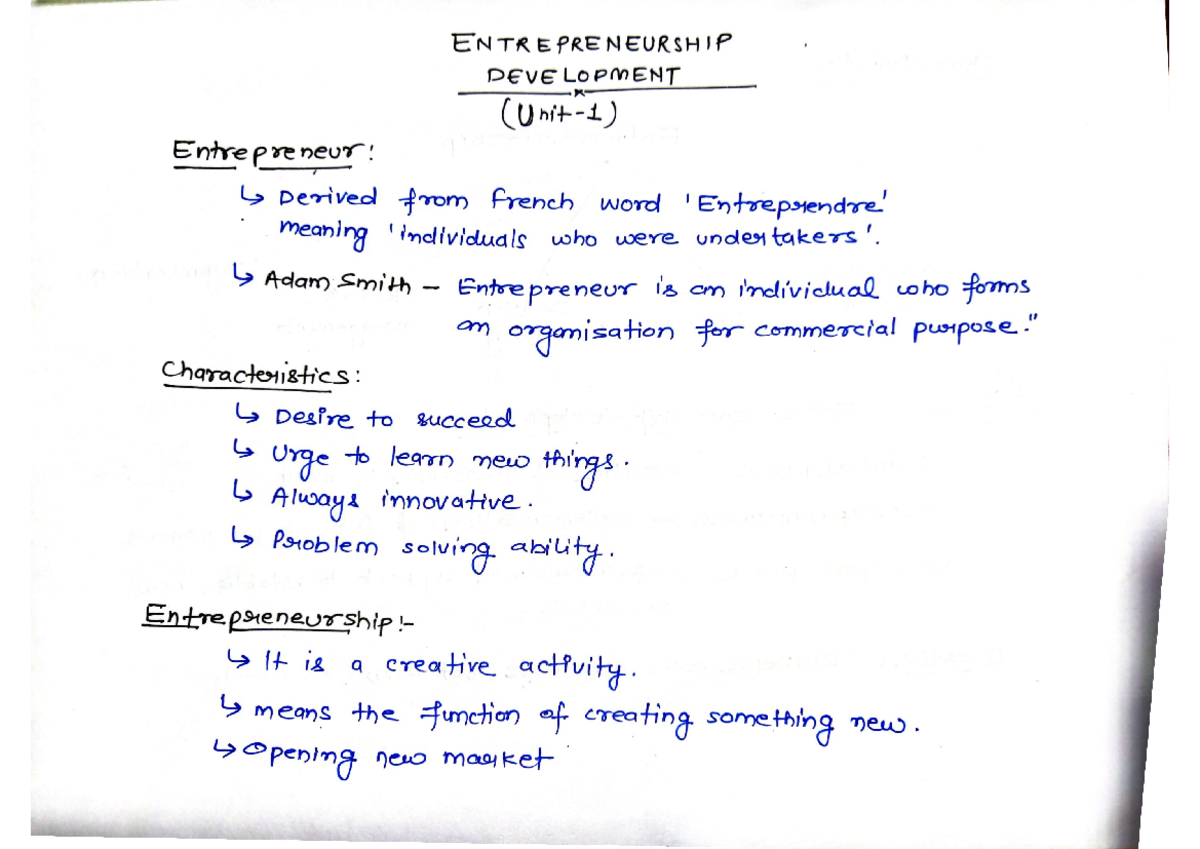 ENTREPRENEURSHIP
DEVELOPMENT
(Unit-1)
Entrepreneur:
↳ Derived from french word 'Entreprendre'
meaning 'individuals who were undertakers'.
↳ Adam Smith – Entrepreneur is an individual who forms
an organisation for commercial purpose."
Characteristics:
↳ Desire to succeed
↳ Urge to learn new things.
↳ Always innovative.
↳ Problem solving ability.
Entrepreneurship:-
↳ It is a creative activity.
↳ means the function of creating something new.
↳ Opening new market